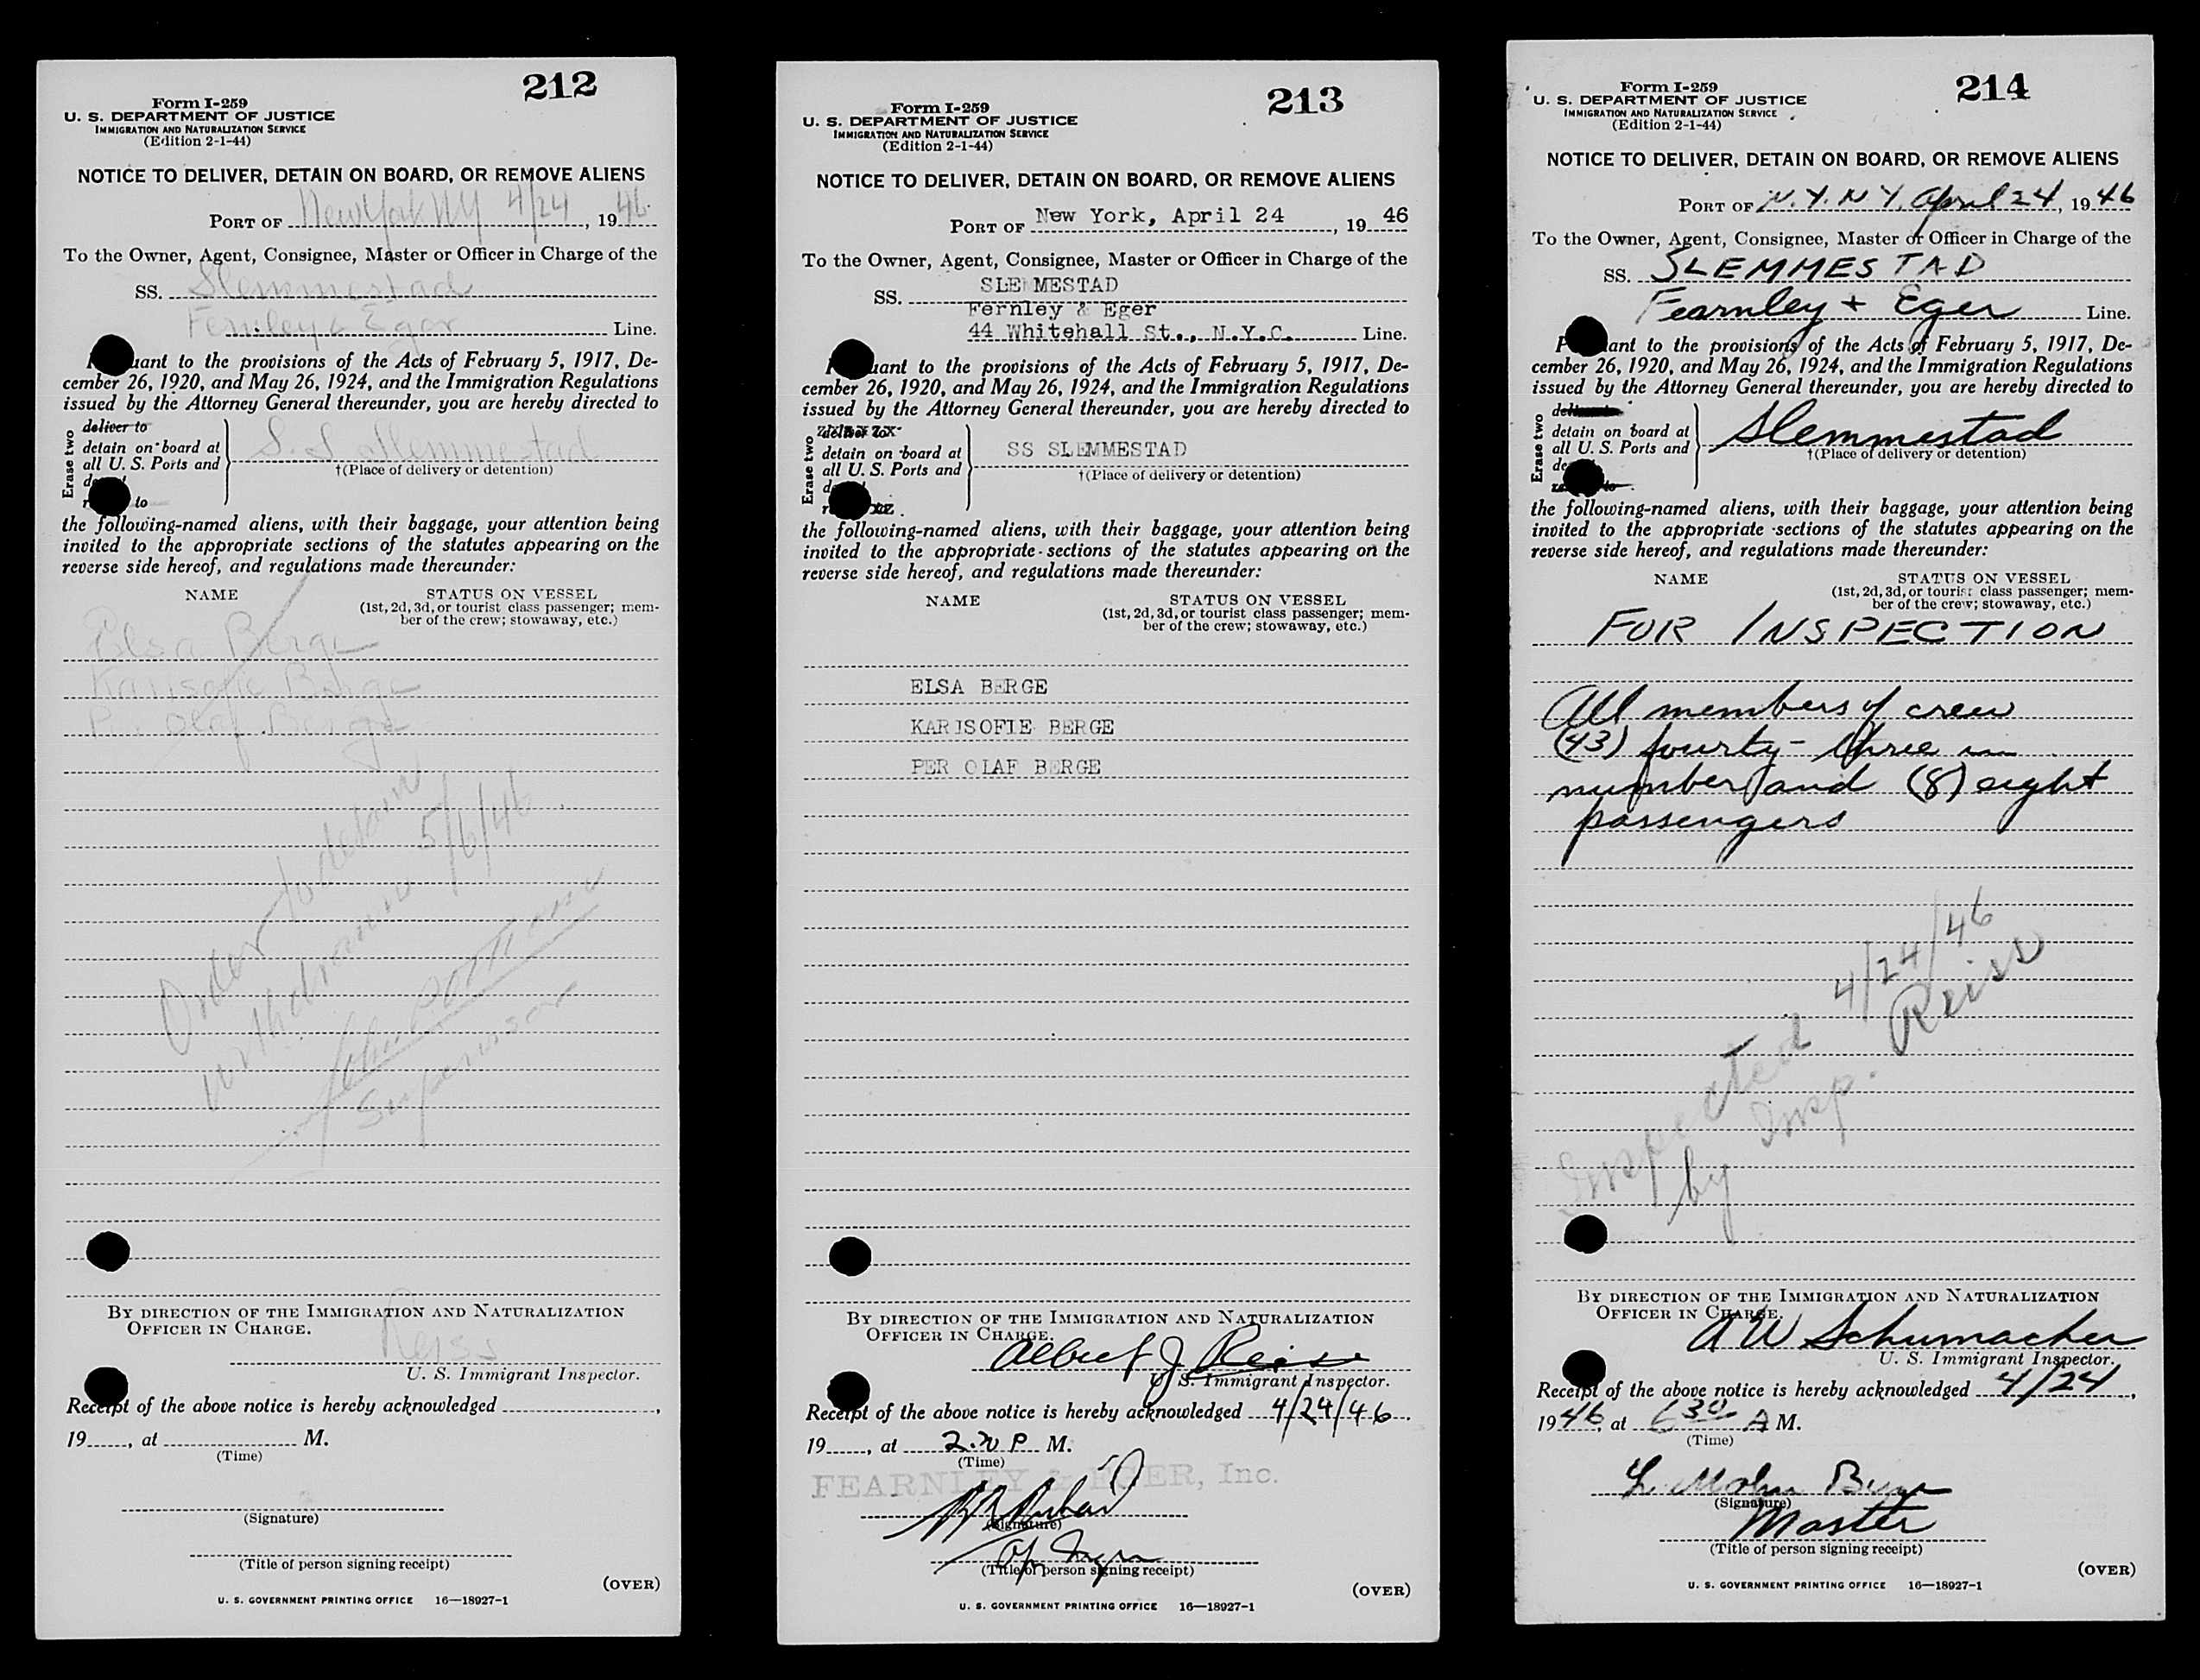 212
Form I-259
U. S. DEPARTMENT OF JUSTICE
IMMIGRATION AND NATURALIZATION SERVICE
(Edition 2-1-44)
NOTICE TO DELIVER, DETAIN ON BOARD, OR REMOVE ALIENS
PORT OF New York NY 4/24, 1946
To the Owner, Agent, Consignee, Master or Officer in Charge of the
SS. Slemmestad
Fernley & Eger Line.
uant to the provisions of the Acts of February 5, 1917, De-
cember 26, 1920, and May 26, 1924, and the Immigration Regulations
issued by the Attorney General thereunder, you are hereby directed to
Erase two
deliver to
detain on board at
all U. S. Ports and
to
S.S Slemmestad
†(Place of delivery or detention)
the following-named aliens, with their baggage, your attention being
invited to the appropriate sections of the statutes appearing on the
reverse side hereof, and regulations made thereunder:
NAME
STATUS ON VESSEL
(1st, 2d, 3d, or tourist class passenger; mem-
ber of the crew; stowaway, etc.)
Elsa Berge
Karisofie Berge
Olaf Berge
Order to detain
withdrawn 5/6/46
John
Supervisor
BY DIRECTION OF THE IMMIGRATION AND NATURALIZATION
OFFICER IN CHARGE.
Reiss
U. S. Immigrant Inspector.
Receipt of the above notice is hereby acknowledged
19, at M.
(Time)
(Signature)
(Title of person signing receipt)
(OVER)
U. S. GOVERNMENT PRINTING OFFICE 16—18927-1
213
Form I-259
U. S. DEPARTMENT OF JUSTICE
IMMIGRATION AND NATURALIZATION SERVICE
(Edition 2-1-44)
NOTICE TO DELIVER, DETAIN ON BOARD, OR REMOVE ALIENS
PORT OF New York, April 24, 19 46
To the Owner, Agent, Consignee, Master or Officer in Charge of the
SS. SLEMMESTAD
Fernley & Eger
44 Whitehall St., N.Y.C. Line.
uant to the provisions of the Acts of February 5, 1917, De-
cember 26, 1920, and May 26, 1924, and the Immigration Regulations
issued by the Attorney General thereunder, you are hereby directed to
Erase two
deliver to
detain on board at
all U. S. Ports and
SS SLEMMESTAD
†(Place of delivery or detention)
the following-named aliens, with their baggage, your attention being
invited to the appropriate sections of the statutes appearing on the
reverse side hereof, and regulations made thereunder:
NAME
STATUS ON VESSEL
(1st, 2d, 3d, or tourist class passenger; mem-
ber of the crew; stowaway, etc.)
ELSA BERGE
KARISOFIE BERGE
PER OLAF BERGE
BY DIRECTION OF THE IMMIGRATION AND NATURALIZATION
OFFICER IN CHARGE.
Albert J Reiss
U. S. Immigrant Inspector.
Receipt of the above notice is hereby acknowledged 4/24/46.
19, at 2.30 P M.
(Time)
FEARNLEY & EGER, Inc.
(Signature)
(Title of person signing receipt)
(OVER)
U. S. GOVERNMENT PRINTING OFFICE 16—18927-1
214
Form I-259
U. S. DEPARTMENT OF JUSTICE
IMMIGRATION AND NATURALIZATION SERVICE
(Edition 2-1-44)
NOTICE TO DELIVER, DETAIN ON BOARD, OR REMOVE ALIENS
PORT OF N.Y. N Y. April 24, 1946
To the Owner, Agent, Consignee, Master or Officer in Charge of the
SS. SLEMMESTAD
Fearnley + Eger Line.
P ant to the provisions of the Acts of February 5, 1917, De-
cember 26, 1920, and May 26, 1924, and the Immigration Regulations
issued by the Attorney General thereunder, you are hereby directed to
Erase two
detain on board at
all U. S. Ports and
Slemmestad
†(Place of delivery or detention)
the following-named aliens, with their baggage, your attention being
invited to the appropriate sections of the statutes appearing on the
reverse side hereof, and regulations made thereunder:
NAME
STATUS ON VESSEL
(1st, 2d, 3d, or tourist class passenger; mem-
ber of the crew; stowaway, etc.)
FOR INSPECTION
All members of crew
(43) fourty-three in
number and (8) eight
passengers
Inspected 4/24/46
by Insp. Reiss
BY DIRECTION OF THE IMMIGRATION AND NATURALIZATION
OFFICER IN CHARGE.
A W Schumacher
U. S. Immigrant Inspector.
Receipt of the above notice is hereby acknowledged 4/24,
1946, at 6 30 A M.
(Time)
(Signature)
Master
(Title of person signing receipt)
(OVER)
U. S. GOVERNMENT PRINTING OFFICE 16—18927-1